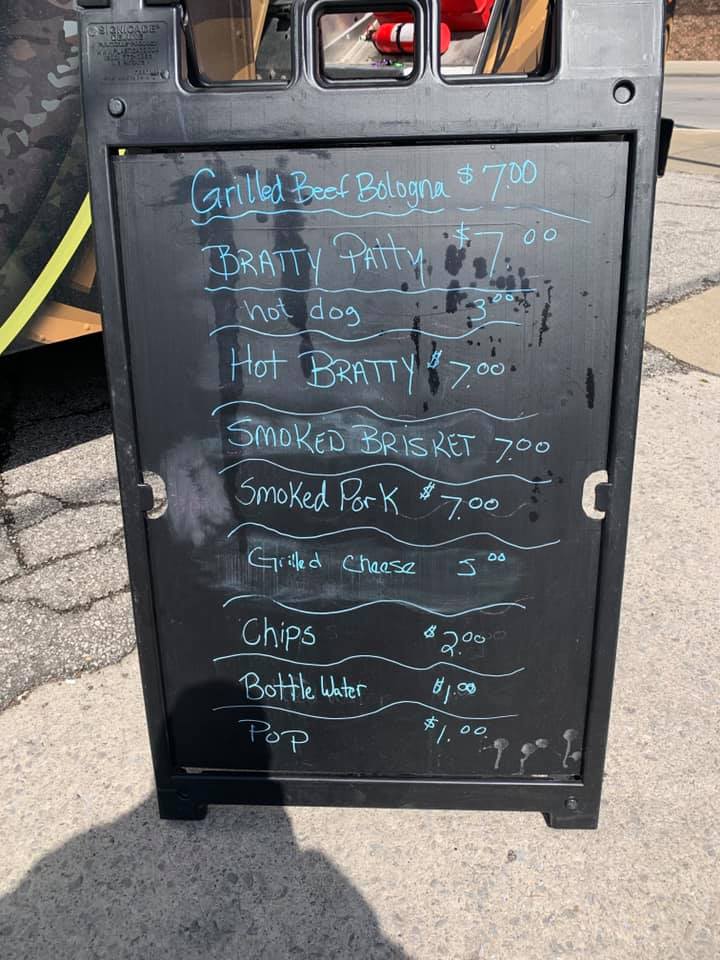 SIGNICADE
Grilled Beef Bologna $7.00
BRATTY PAttY $7.00
hot dog 3.00
Hot BRATTY $7.00
SMOKED BRISKET 7.00
Smoked Pork $7.00
Grilled cheese 5.00
Chips $2.00
Bottle Water $1.00
Pop $1.00